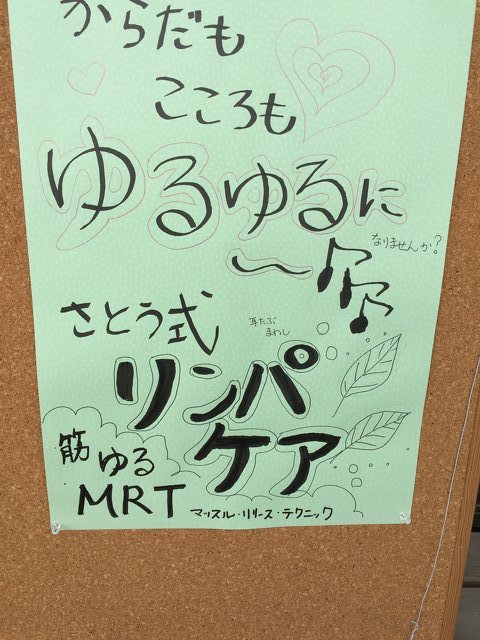 からだも
こころも
ゆるゆるに
〜
なりませんか?
さとう式
耳たぶ
まわし
リンパ
ケア
筋ゆる
MRT
マッスル・リリース・テクニック